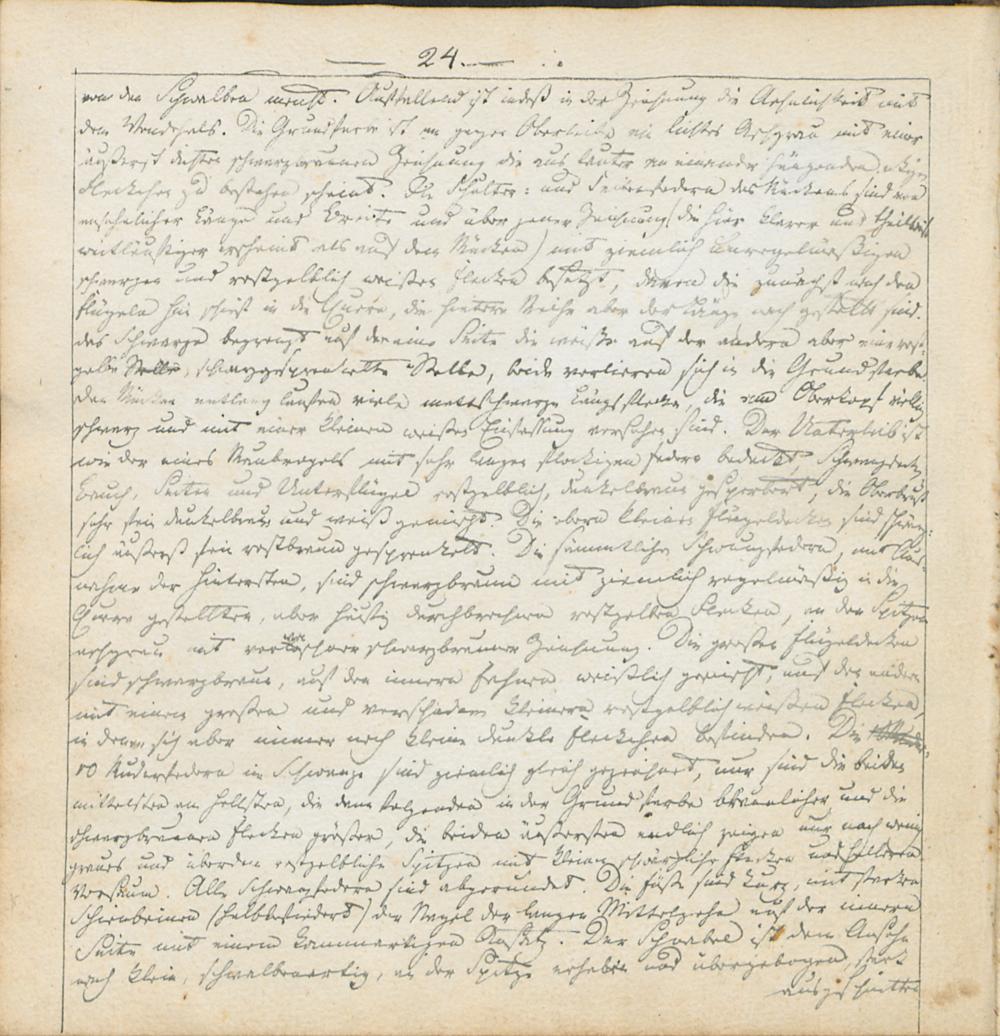 — 24. —
von den Schwalben macht. Auffallend ist indeß in der Zeichnung die Aehnlichkeit mit
dem Wendehals. Die Grundfarbe ist am ganzen Oberleibe ein lichtes Aschgrau mit einer
äußerst dichten schwarzbraunen Zeichnung die aus lauter an einander hängenden eckigen
Fleckchen zu bestehen scheint. Die Schulter- und Seitenfedern des Rückens sind von
ansehnlicher Länge und Breite und über jener Zeichnung (die hier klarer und theilweis
weitläuftiger erscheint als auf dem Rücken) mit ziemlich unregelmäßigen
schwarzen und rostgelblich weißen Flecken besetzt, davon die zunächst nach den
Flügeln hin schief in die Quere, die hintere Reihe aber der Länge nach gestellt sind.
das Schwarze begrenzt auf der einen Seite die weiße auf der andern aber eine rost-
gelbe schwarzgesprenkelte Stelle, beide verlieren sich in die Grundfarbe.
Den Rücken entlang laufen viele mattschwarze Längsflecke, die am Oberkopf
schwarz und mit einer kleinen weißen Einfassung versehen sind. Der Unterleib ist
wie der eines Raubvogels mit sehr langen flockigen Federn bedeckt.
Bauch, Seiten und Unterflügel rostgelblich, dunkelbraun gesperbert, die Oberbrust
sehr fein dunkelbraun und weiß gemischt. Die obern kleinen Flügeldecken sind
lich äußerst fein rostbraun gesprenkelt. Die sämmtlichen Schwungfedern, mit Aus-
nahme der hintersten, sind schwarzbraun mit ziemlich regelmäßig in die
Quere gestellten, aber häufig durchbrochnen rostgelben Flecken, an den Spitzen
aschgrau mit schwarzbrauner Zeichnung. Die großen Flügeldecken
sind schwarzbraun, auf den innern Fahnen weißlich gemischt, auf den andern
mit einem großen und verschiednen kleinern rostgelblich weißen Flecken,
in denen sich aber immer noch kleine dunkle Fleckchen befinden. Die
10 Ruderfedern im Schwanze sind ziemlich gleich gezeichnet, nur sind die beiden
mittelsten am hellsten, die dann folgenden in der Grundfarbe bräunlicher und die
schwarzbraunen Flecken größer, die beiden äußersten endlich zeigen nur noch wenig
graues und überdem rostgelbliche Spitzen mit kleinen schwärzlichen Flecken und hellerem
Vorsaum. Alle Schwanzfedern sind abgerundet. Die Füße sind kurz, mit starken
Schienbeinen (halbbefiedert) der Nagel der langen Mittelzehe auf der innern
Seite mit einem kammartigen Ansatz. Der Schnabel ist dem Ansehn
nach klein, schwalbenartig, an der Spitze erhaben und übergebogen, stark
ausgeschnitten